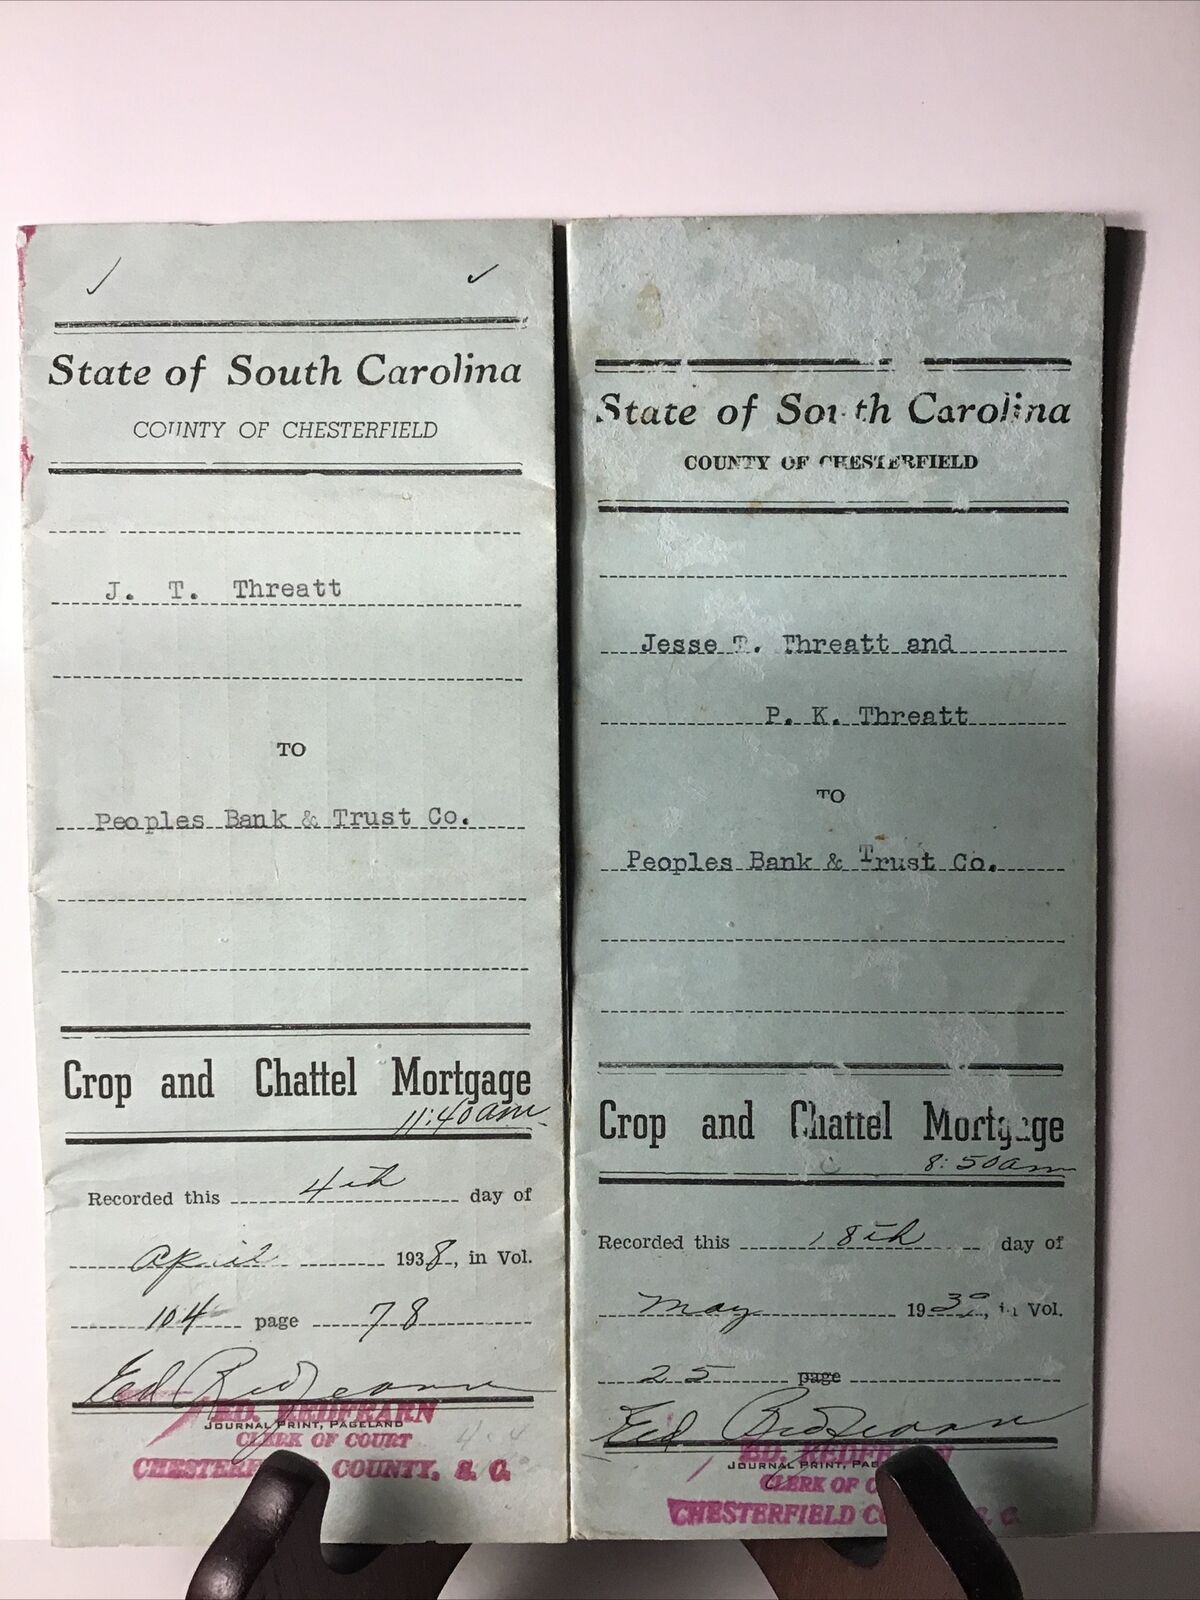 State of South Carolina
COUNTY OF CHESTERFIELD
J. T. Threatt
TO
Peoples Bank & Trust Co.
Crop and Chattel Mortgage
11:40 am.
Recorded this 4th day of
April 1938, in Vol.
104 page 78
Ed Redfearn
ED. REDFEARN
JOURNAL PRINT, PAGELAND
CLERK OF COURT
CHESTERFIELD COUNTY, S. C.
State of South Carolina
COUNTY OF CHESTERFIELD
Jesse T. Threatt and
P. K. Threatt
TO
Peoples Bank & Trust Co.
Crop and Chattel Mortgage
8:50 am
Recorded this 18th day of
May 1939, in Vol.
25 page
Ed Redfearn
ED. REDFEARN
JOURNAL PRINT, PAG
CLERK OF C
CHESTERFIELD CO S. C.